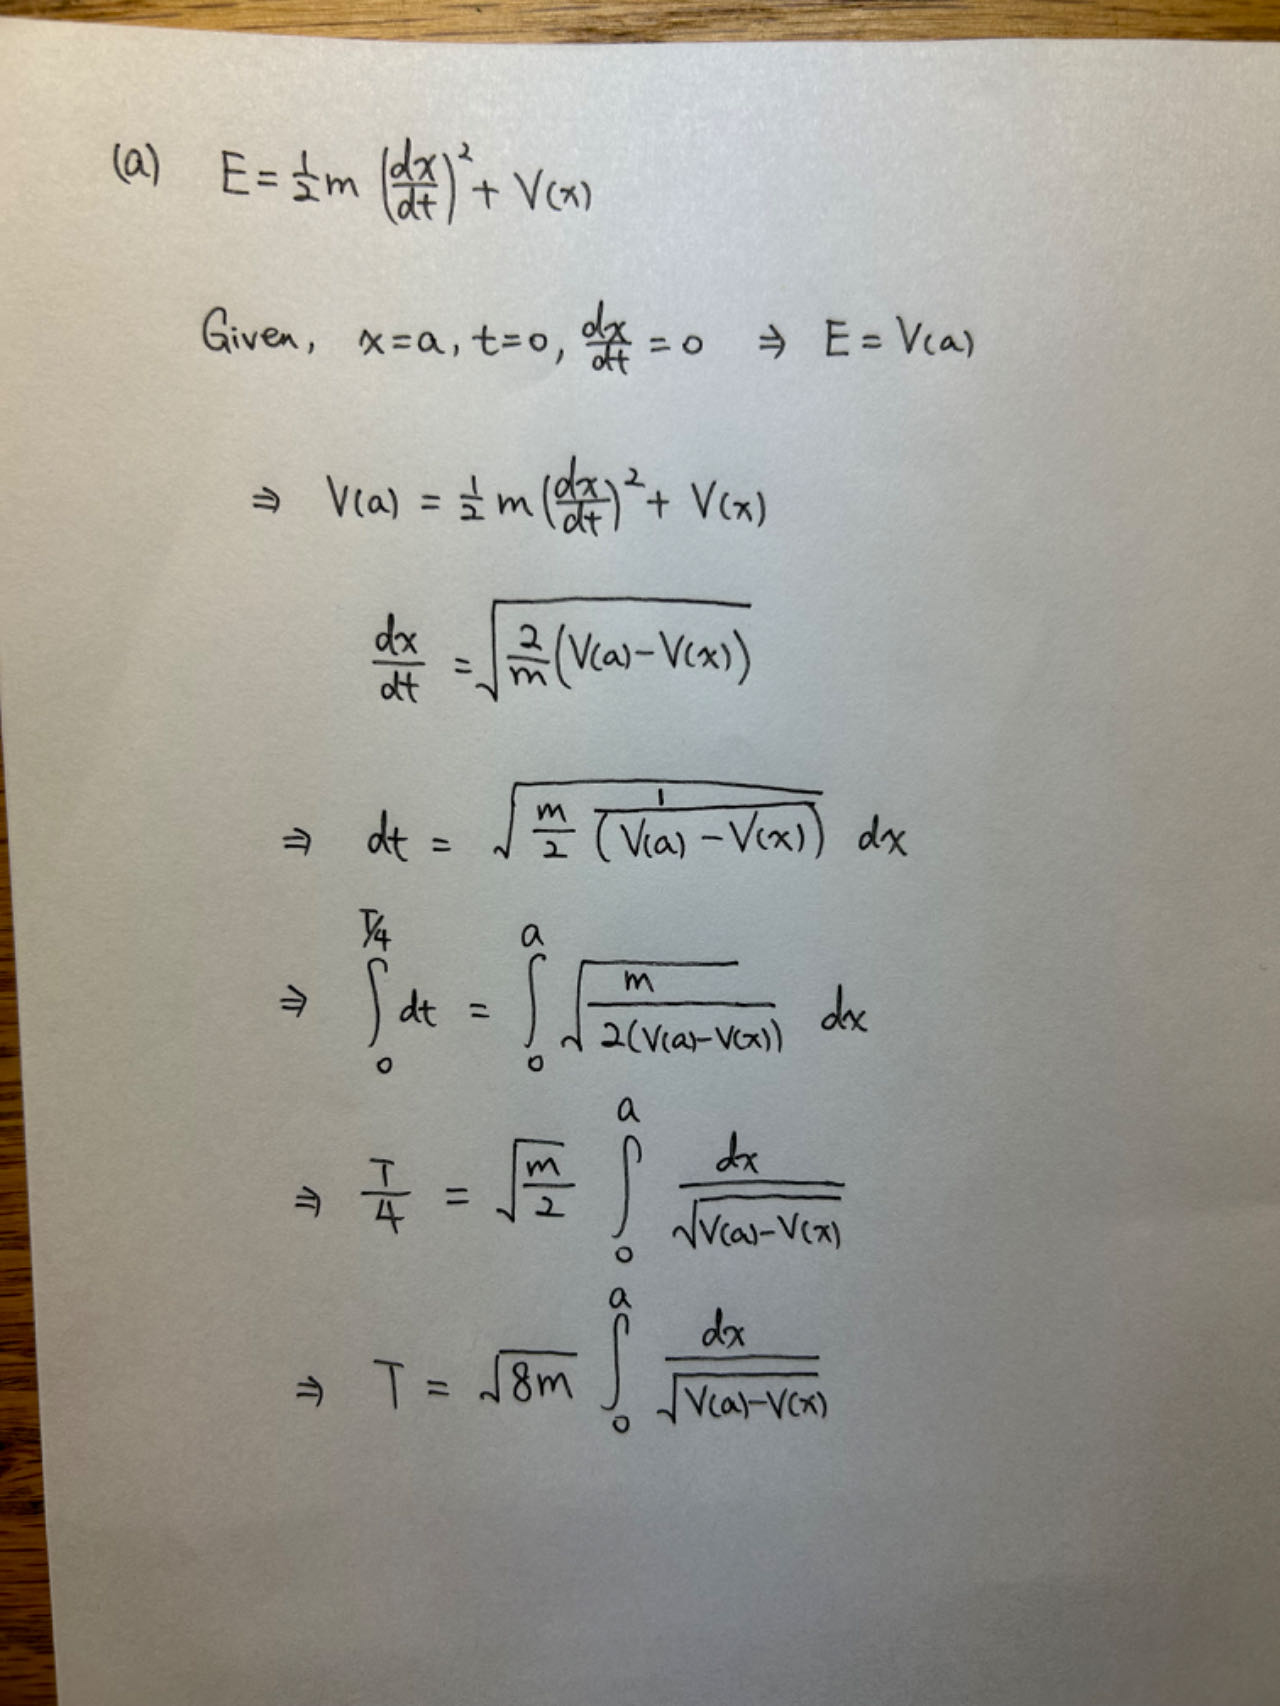 (a) E = ½ m (dx/dt)² + V(x)
Given, x=a, t=0, dx/dt = 0 ⇒ E = V(a)
⇒ V(a) = ½ m (dx/dt)² + V(x)
dx/dt = √(2/m (V(a) − V(x)))
⇒ dt = √(m/2 1/(V(a) − V(x))) dx
⇒ ∫₀^(T/4) dt = ∫₀^a √(m/(2(V(a)−V(x)))) dx
⇒ T/4 = √(m/2) ∫₀^a dx/√(V(a)−V(x))
⇒ T = √(8m) ∫₀^a dx/√(V(a)−V(x))